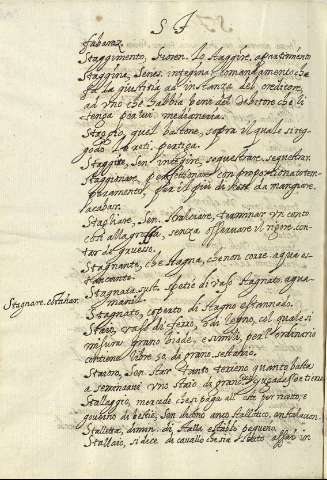 S T
fabaraz.
Staggimento, Fioren. Lo staggire, apartamiento
Staggina, Senes. integina comandamento che
fa la giustitia ad instanza del creditore,
ad uno che habbia beni del debitore che li
tenga per lui
Staggio, quel bastone, sopra il quale si reg-
gono le reti, pertiga.
Staggire, Sen. integire, sequestrare. sequestrar.
Stagionare, perfettionare con proportionato tem-
peramento, per il più di cose da mangiare.
acabar.
Stagliare, Sen. tramar un conto
così alla grossa, senza osservare il rigore. con-
tar de gruesso.
Stagnante, che stagna, che non corre. agua es-
tancante.
Stagnare. estañar.
Stagnata, sust. spetie di vaso stagnato, agua-
manil.
Stagnato, coperto di stagno estannado.
Staio, vaso di ferro, o di legno, col quale si
misura grano, biade, e simili, per l'ordinario
contiene libre 50. di grano,
Staioro, Sen. Star tanto terreno quanto basta
a seminarvi uno staio di grano.
Stallaggio, mercede che si paga all' oste per ricetto, e
governo di bestie, Sen. dicono anco Stallatico,
Stalletta, dimin. di stalla establo pequeño.
Stallio, si dice di cavallo che sia stato assai in